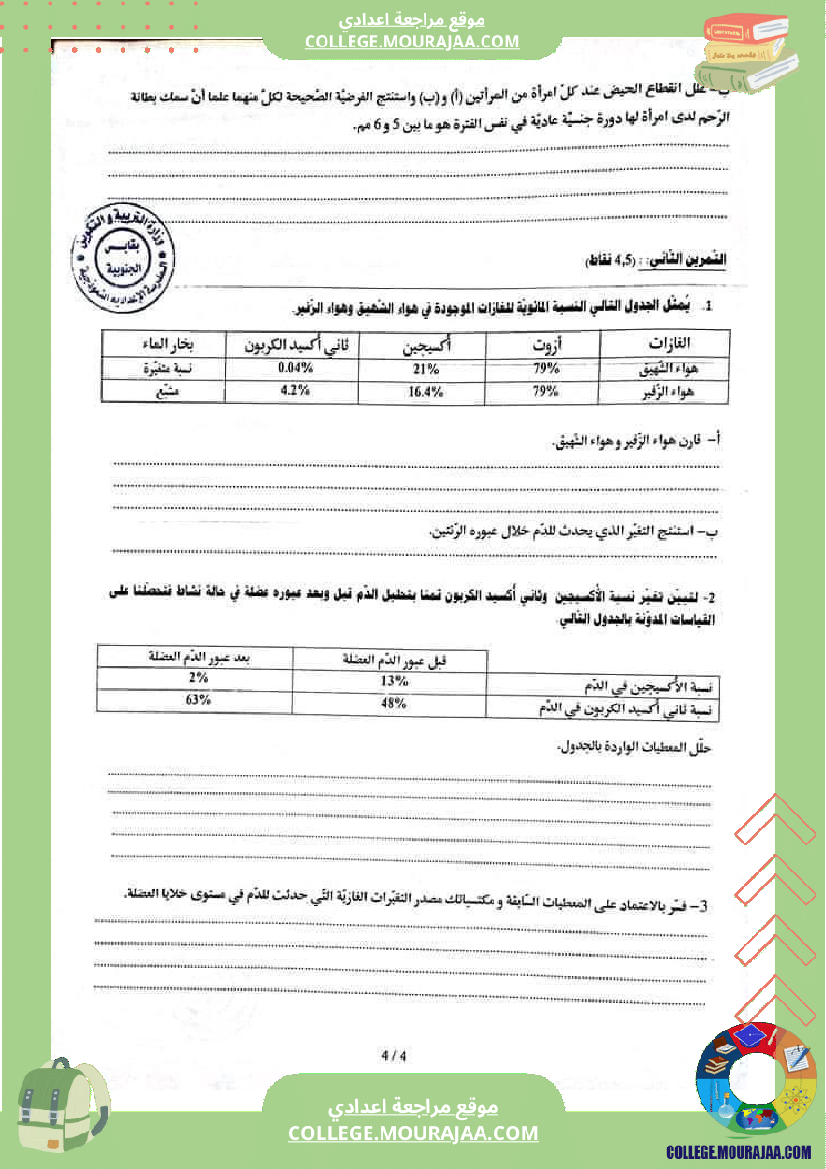 موقع مراجعة اعدادي
COLLEGE.MOURAJAA.COM
ب- علل انقطاع الحيض عند كلّ امرأة من المرأتين (أ) و(ب) واستنتج الفرضيّة الصّحيحة لكلّ منهما علما أنّ سمك بطانة
الرّحم لدى امرأة لها دورة جنسيّة عاديّة في نفس الفترة هو ما بين 5 و 6 مم.
وزارة التربية و التكوين
بقابس
الجنوبية
المدرسة الإعدادية النموذجية
التمرين الثّاني: : (4,5 نقاط)
1. يُمثّل الجدول التالي النسبة المائويّة للغازات الموجودة في هواء الشّهيق وهواء الزّفير.
الغازات أزوت أكسيجين ثاني أكسيد الكربون بخار الماء
هواء الشّهيق 79% 21% 0.04% نسبة متغيّرة
هواء الزّفير 79% 16.4% 4.2% مشبّع
أ- قارن هواء الزّفير و هواء الشّهيق.
ب- استنتج التغيّر الذي يحدث للدّم خلال عبوره الرّئتين.
2- لتبيّن تغيّر نسبة الأكسيجين وثاني أكسيد الكربون قمنا بتحليل الدّم قبل وبعد عبوره عضلة في حالة نشاط فتحصّلنا على
القياسات المدوّنة بالجدول التالي.
قبل عبور الدّم العضلة بعد عبور الدّم العضلة
نسبة الأكسيجين في الدّم 13% 2%
نسبة ثاني أكسيد الكربون في الدّم 48% 63%
حلّل المعطيات الواردة بالجدول.
3- فسّر بالاعتماد على المعطيات السّابقة و مكتسباتك مصدر التغيّرات الغازيّة التّي حدثت للدّم في مستوى خلايا العضلة.
4 / 4
موقع مراجعة اعدادي
COLLEGE.MOURAJAA.COM
COLLEGE.MOURAJAA.COM